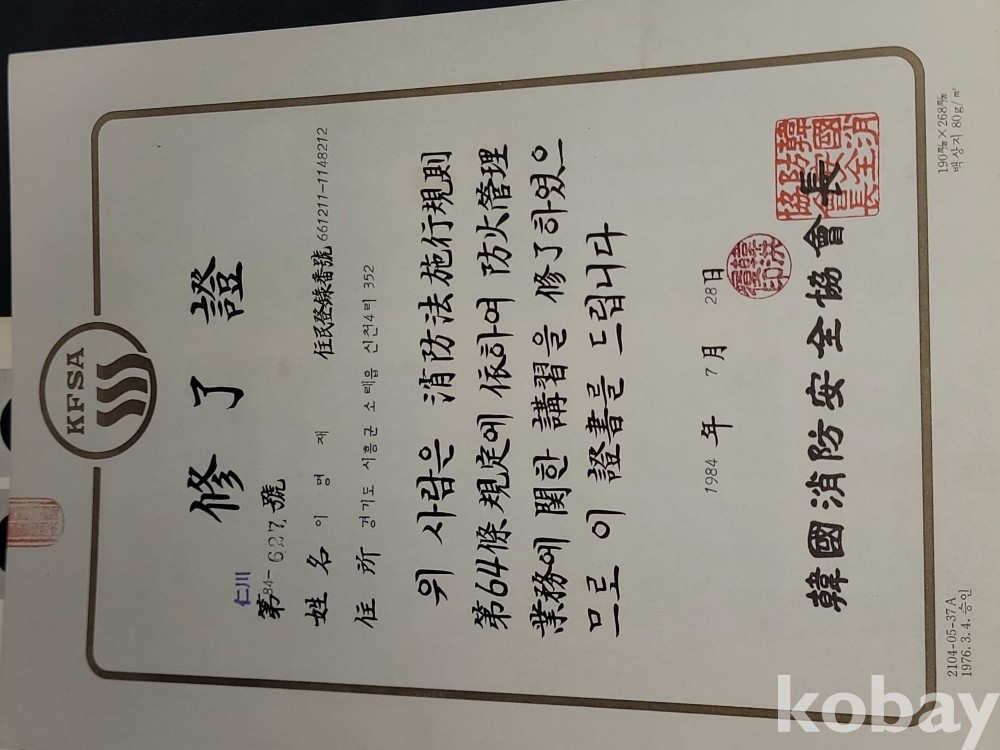 KFSA
修了證
仁川
第84-627號
姓名 이명재 住民登錄番號 661211-1148212
住所 경기도 시흥군 소래읍 신천4리 352
위 사람은 消防法施行規則
第64條 規定에 依하여 防火管理
業務에 関한 講習을 修了하였으
므로 이 證書를 드립니다
1984年 7月 28日
韓國消防安全協會長
2104-05-37A
1976.3.4. 승인
190㎜×268㎜
백상지 80g/㎡
kobay